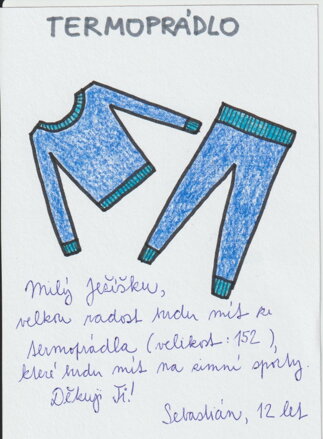 TERMOPRÁDLO
Milý Ježíšku,
velkou radost budu mít ze
termoprádla (velikost: 152),
které budu mít na zimní sporty.
Děkuji Ti!
Sebastián, 12 let